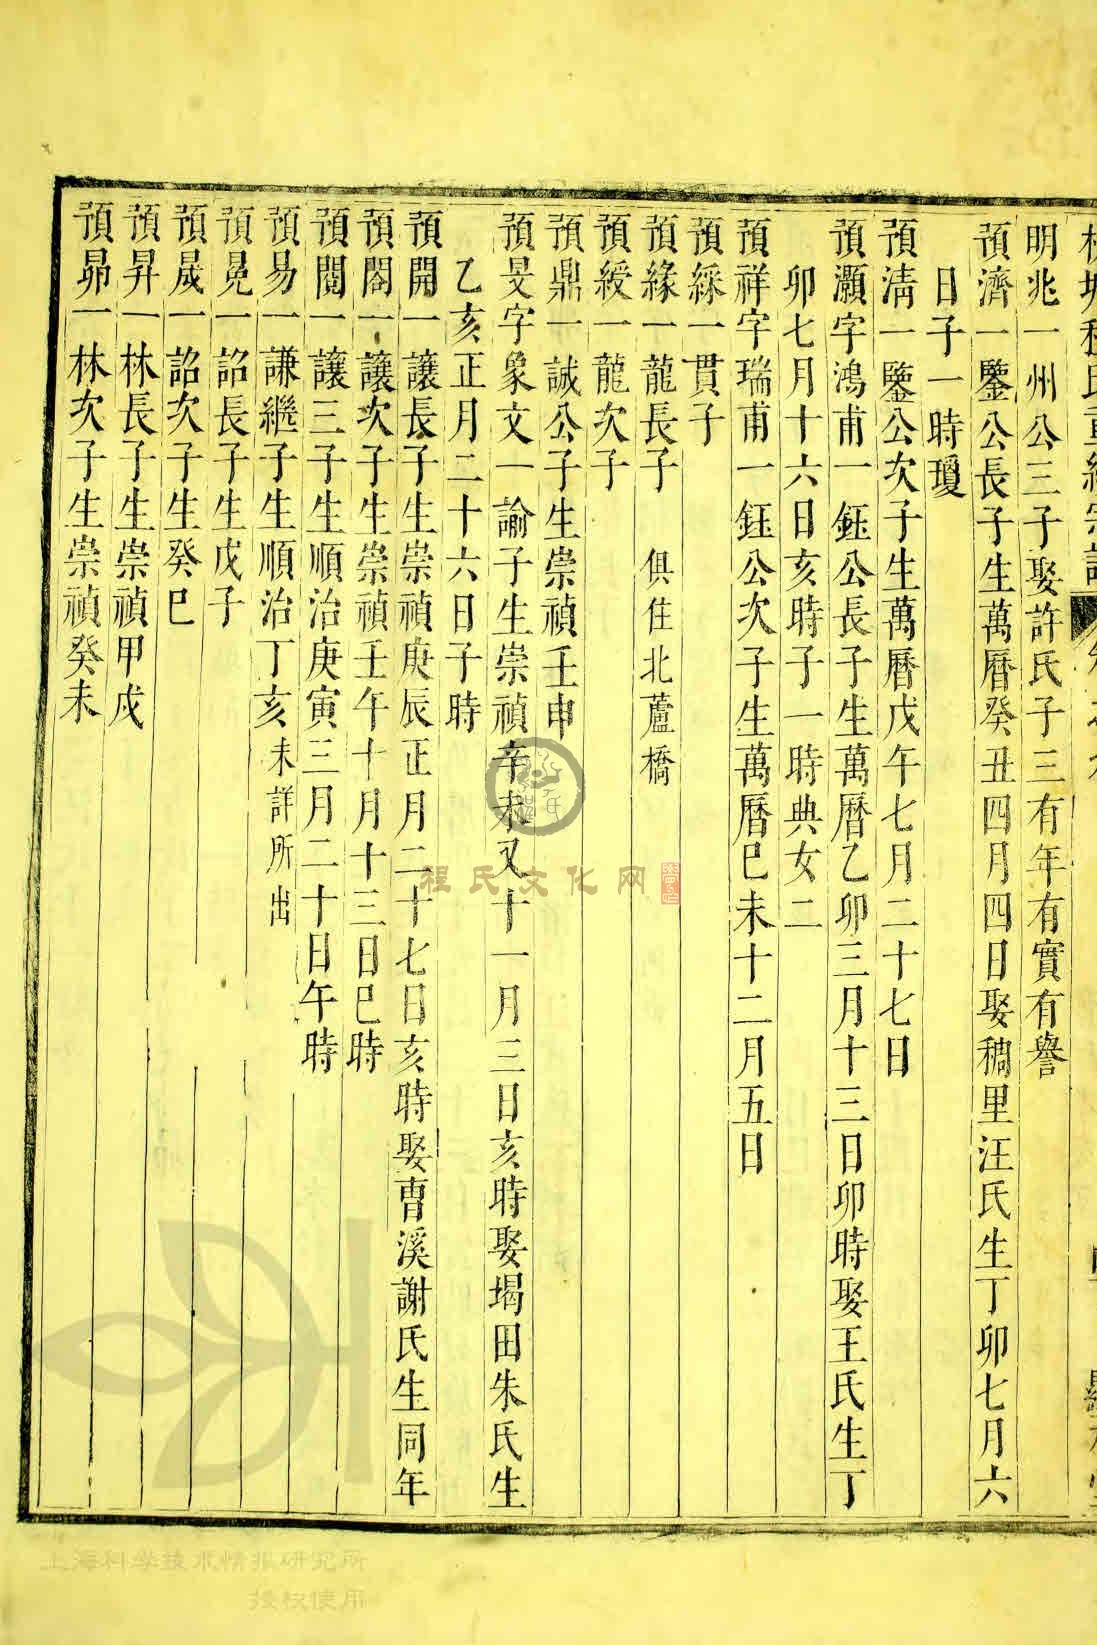 明兆一州公三子娶許氏子三有年有實有譽
預濟一鑒公長子生萬曆癸丑四月四日娶稠里汪氏生丁卯七月六
日子一時瓊
預清一鑒公次子生萬曆戊午七月二十七日
預灝字鴻甫一鈺公長子生萬曆乙卯三月十三日卯時娶王氏生丁
卯七月十六日亥時子一時典女二
預祥字瑞甫一鈺公次子生萬曆巳未十二月五日
預綵一貫子
預緣一龍長子 俱住北蘆橋
預綬一龍次子
預鼎一誠公子生崇禎壬申
預旻字象文一諭子生崇禎辛未又十一月三日亥時娶堨田朱氏生
乙亥正月二十六日子時
預開一讓長子生崇禎庚辰正月二十七日亥時娶曺溪謝氏生同年
預閤一讓次子生崇禎壬午十月十三日巳時
預閱一讓三子生順治庚寅三月二十日午時
預易一謙繼子生順治丁亥 未詳所出
預晃一詔長子生戊子
預晟一詔次子生癸巳
預昇一林長子生崇禎甲戌
預昴一林次子生崇禎癸未
程氏文化网
上海科学技术情报研究所
授权使用